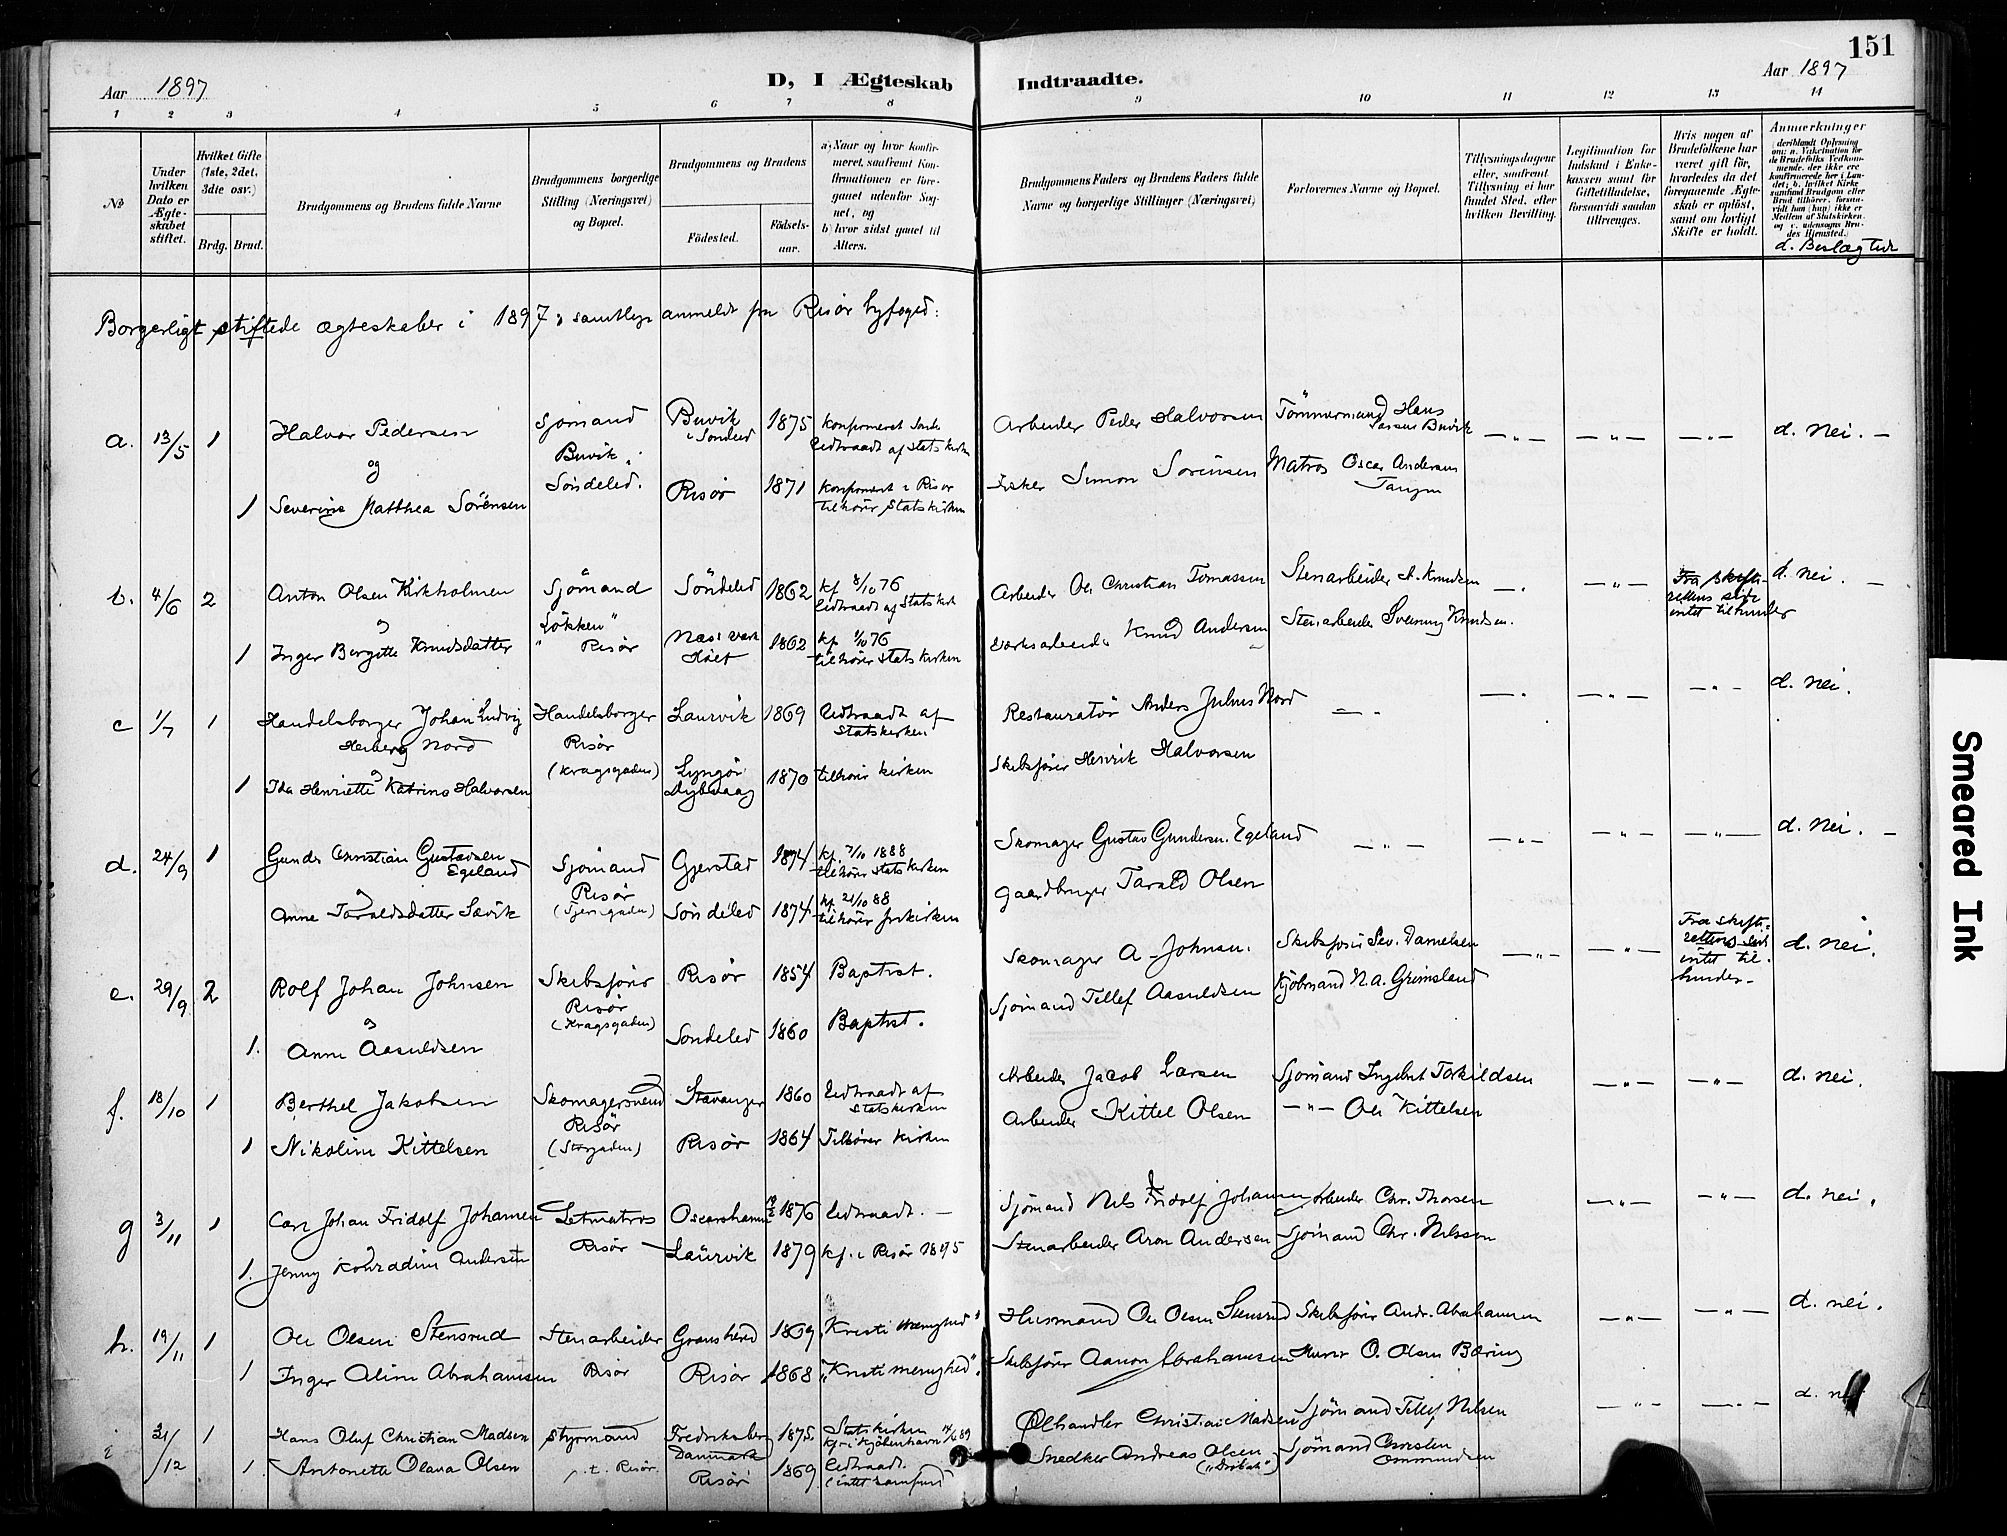 151
Aar 1897
D, I Ægteskab Indtraadte.
Aar 1897
1 2 3 4 5 6 7 8 9 10 11 12 13 14
No
Under hvilken Dato er Ægteskabet stiftet.
Hvilket Gifte (1ste, 2det, 3die osv.)
Brdg. Brud.
Brudgommens og Brudens fulde Navne
Brudgommens borgerlige Stilling (Næringsvei) og Bopæl.
Brudgommens og Brudens
Fødested. Fødsels-aar.
a) Naar og hvor konfirmeret, saafremt Konfirmationen er foregaaet udenfor Sognet, og
b) hvor sidst gaaet til Alters.
Brudgommens Faders og Brudens Faders fulde Navne og borgerlige Stillinger (Næringsvei)
Forlovernes Navne og Bopæl.
Tillysningsdagene eller, saafremt Tillysning ei har fundet Sted, efter hvilken Bevilling.
Legitimation for Indskud i Enkekassen samt for Giftetilladelse, forsaavidt saadan tiltrænges.
Hvis nogen af Brudefolkene har været gift før, hvorledes da det foregaaende Ægteskab er opløst, samt om lovligt Skifte er holdt.
Anmerkninger
(deriblandt Oplysning om: a. Vakcination for de Brudefolks Vedkommende, der ikke ere konfirmerede her i Landet; b. hvilket Kirkesamfund Brudgom eller Brud tilhører, forsaavidt han (hun) ikke er Medlem af Statskirken, og c. udensogns Brudes Hjemsted.)
d. Beslægtede
Borgerligt stiftede ægteskaber i 1897; samtlige anmeldt fra Risør byfoged:
a. 13/5 1 Halvor Pedersen Sjømand Buvik i Søndeled 1875 Udtraadt af Statskirken Arbeider Peder Halvorsen Tømmermand Hans Buvik d. Nei.
og Buvik
1 Severine Matthea Sørensen Søndeled. Risør 1871 konfirmeret i Risør tilhører Statskirken Fisker Simon Sørensen Matros Oscar Andersen Tangen
b. 4/6 2 Anton Olsen Kirkholmen Sjømand Søndeled 1862 kf 8/10 76 Udtraadt af Statskirk Arbeider Ole Christian Tomassen Stenarbeider A. Knudsen Fra skifterettens side intet tilhinder d. Nei.
og Løkken
1 Inger Birgitte Knudsdatter Risør Næs verk Holt 1862 kf 1/10 76 tilhører Statskirken Værksarbeid. Knud Andersen Stenarbeider Knudsen.
c 1/7 1 Handelsborger Johan Ludvig Herberg Nord Handelsborger Laurvik 1869 Udtraadt af Statskirken Restauratør Anders Julius Nord d. Nei.
og Risør (Kragsgaden)
1 Ida Henriette Katrine Halvorsen Lyngør Dybvaag 1870 tilhører kirken Skibsfører Henrik Halvorsen
d. 24/9 1 Gunder Christian Gustavsen Egeland Sjømand Gjerstad 1874 kf. 7/10 1888 tilhører Statskirken Skomager Gustav Gundersen Egeland d. Nei.
og Risør
Anne Taraldsdatter Søndeled 1874 kf. 21/10 88 tilhører frikirken Gaardbruger Tarald Olsen
e. 29/9 2 Rolf Johan Johnsen Skibsfører Risør 1854 Baptist. Skomager A. Johnsen. Skibsfører Sev. Danielsen Fra skifterettens side intet tilhinder d. Nei.
og Risør (Kragsgaden)
1. Anne Aasuldsen Søndeled 1860 Baptist. Sjømand Tellef Aasuldsen Kjøbmand N. A. Grimsland
f. 18/10 1 Berthel Jakobsen Skomagersvend Stavanger 1860 Udtraadt af Statskirken Arbeider Jacob Larsen Sjømand Ingebret Torkildsen d. Nei.
Risør (Storgaden)
1 Nikoline Kittelsen Risør 1864 Tilhører Kirken Arbeider Kittel Olsen Ole Kittelsen
g 3/11 1 Carl Johan Fridolf Johansen Letmatros Oscarshamn 1876 Udtraadt. Sjømand Nils Fridolf Johansen Arbeider Chr. Thorsen d. Nei.
1. Jenny Konradine Andersen Risør Laurvik 1879 kf. i Risør 1895 Stenarbeider Aron Andersen Sjømand Chr. Nilsson
h. 19/11 1 Ole Olsen Stensrud Stenarbeider Gransherred 1869 "Kristi Menighed" Husmand Ole Olsen Stensrud Skibsfører Andr. Abrahamsen d. Nei.
1 Inger Aline Abrahamsen Risør Risør 1868 "Kristi menighed". Skibsfører Aanon Abrahamsen Murer O. Olsen Bæring
i 31/12 1 Hans Oluf Christian Madsen Styrmand Fredriksberg Danmark 1875 Statskirken kf. i Kjøbenhavn Ølhandler Christian Madsen Sjømand Tellef Nilsen d. nei
1. Antonette Olava Olsen p.t. Risør. Risør 1869 Udtraadt (intet samfund) Snedker Andreas Olsen Sjømand Ommundsen
Smeared Ink